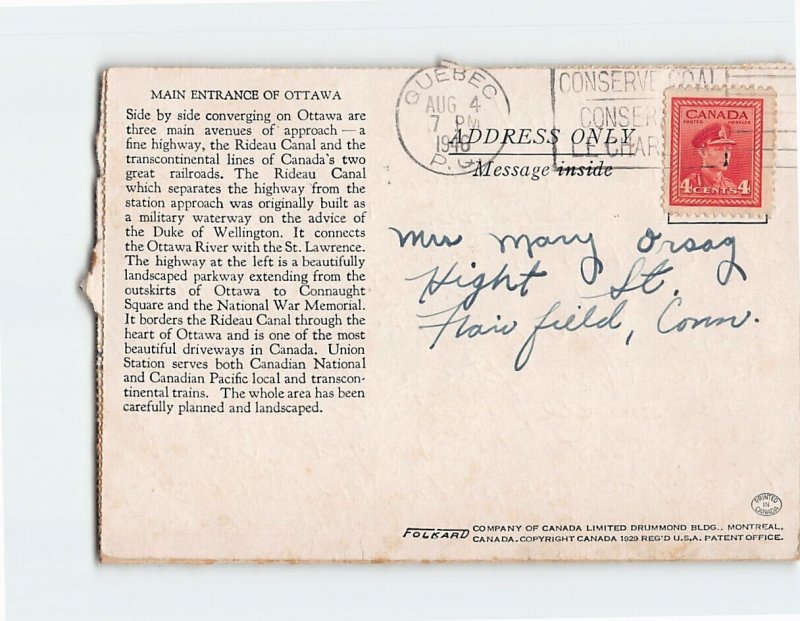 MAIN ENTRANCE OF OTTAWA
Side by side converging on Ottawa are
three main avenues of approach — a
fine highway, the Rideau Canal and the
transcontinental lines of Canada's two
great railroads. The Rideau Canal
which separates the highway from the
station approach was originally built as
a military waterway on the advice of
the Duke of Wellington. It connects
the Ottawa River with the St. Lawrence.
The highway at the left is a beautifully
landscaped parkway extending from the
outskirts of Ottawa to Connaught
Square and the National War Memorial.
It borders the Rideau Canal through the
heart of Ottawa and is one of the most
beautiful driveways in Canada. Union
Station serves both Canadian National
and Canadian Pacific local and transcon-
tinental trains. The whole area has been
carefully planned and landscaped.
QUEBEC
AUG 4
7 PM
1948
P.Q.
CONSERVE COAL
CONSER
LE CHAR
ADDRESS ONLY
Message inside
CANADA
POSTES POSTAGE
4 CENTS 4
Mrs Mary Orsag
Hight St.
Fairfield, Conn.
PRINTED
IN
CANADA
FOLKARD COMPANY OF CANADA LIMITED DRUMMOND BLDG., MONTREAL,
CANADA. COPYRIGHT CANADA 1929 REG'D U.S.A. PATENT OFFICE.